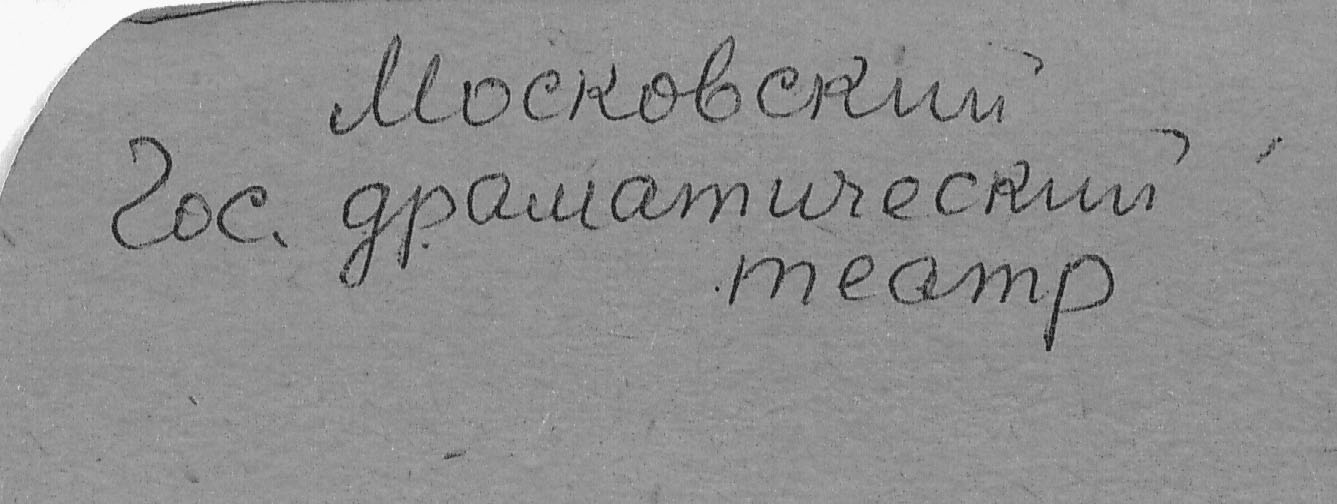 Московский
Гос. драматический
театр